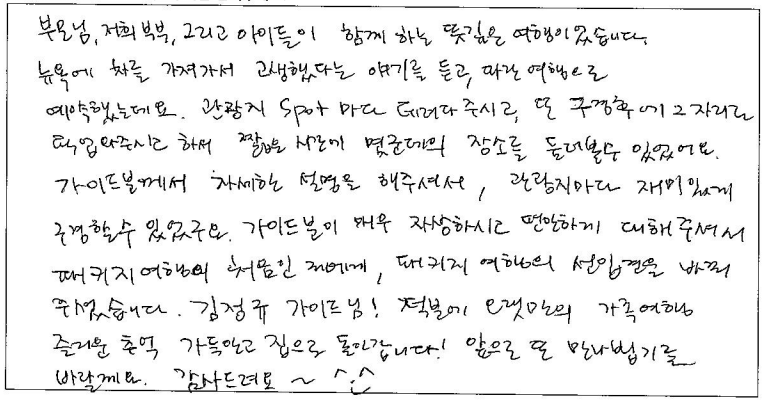 부모님, 저희 부부, 그리고 아이들이 함께 하는 뜻깊은 여행이었습니다.
뉴욕에 차를 가져가서 고생했다는 얘기를 듣고, 따라 여행으로
예약했는데요. 관광지 Spot 마다 데려다 주시고, 또 구경후에 그 자리로
픽업와주시고 하셔 짧은 시간에 몇군데의 장소를 둘러볼수 있었어요.
가이드분께서 자세하는 설명을 해주셔서, 관광지마다 재미있게
구경할수 있었구요. 가이드분이 매우 자상하시고 편안하게 대해주셔서
패키지여행의 처음인 저에게, 패키지 여행의 선입견을 바꿔
주셨습니다. 김정규 가이드님! 덕분에 오랫만의 가족여행
즐거운 추억 가득안고 집으로 돌아갑니다! 앞으로 또 만나뵙기를
바랄께요. 감사드려요 ~ ^.^